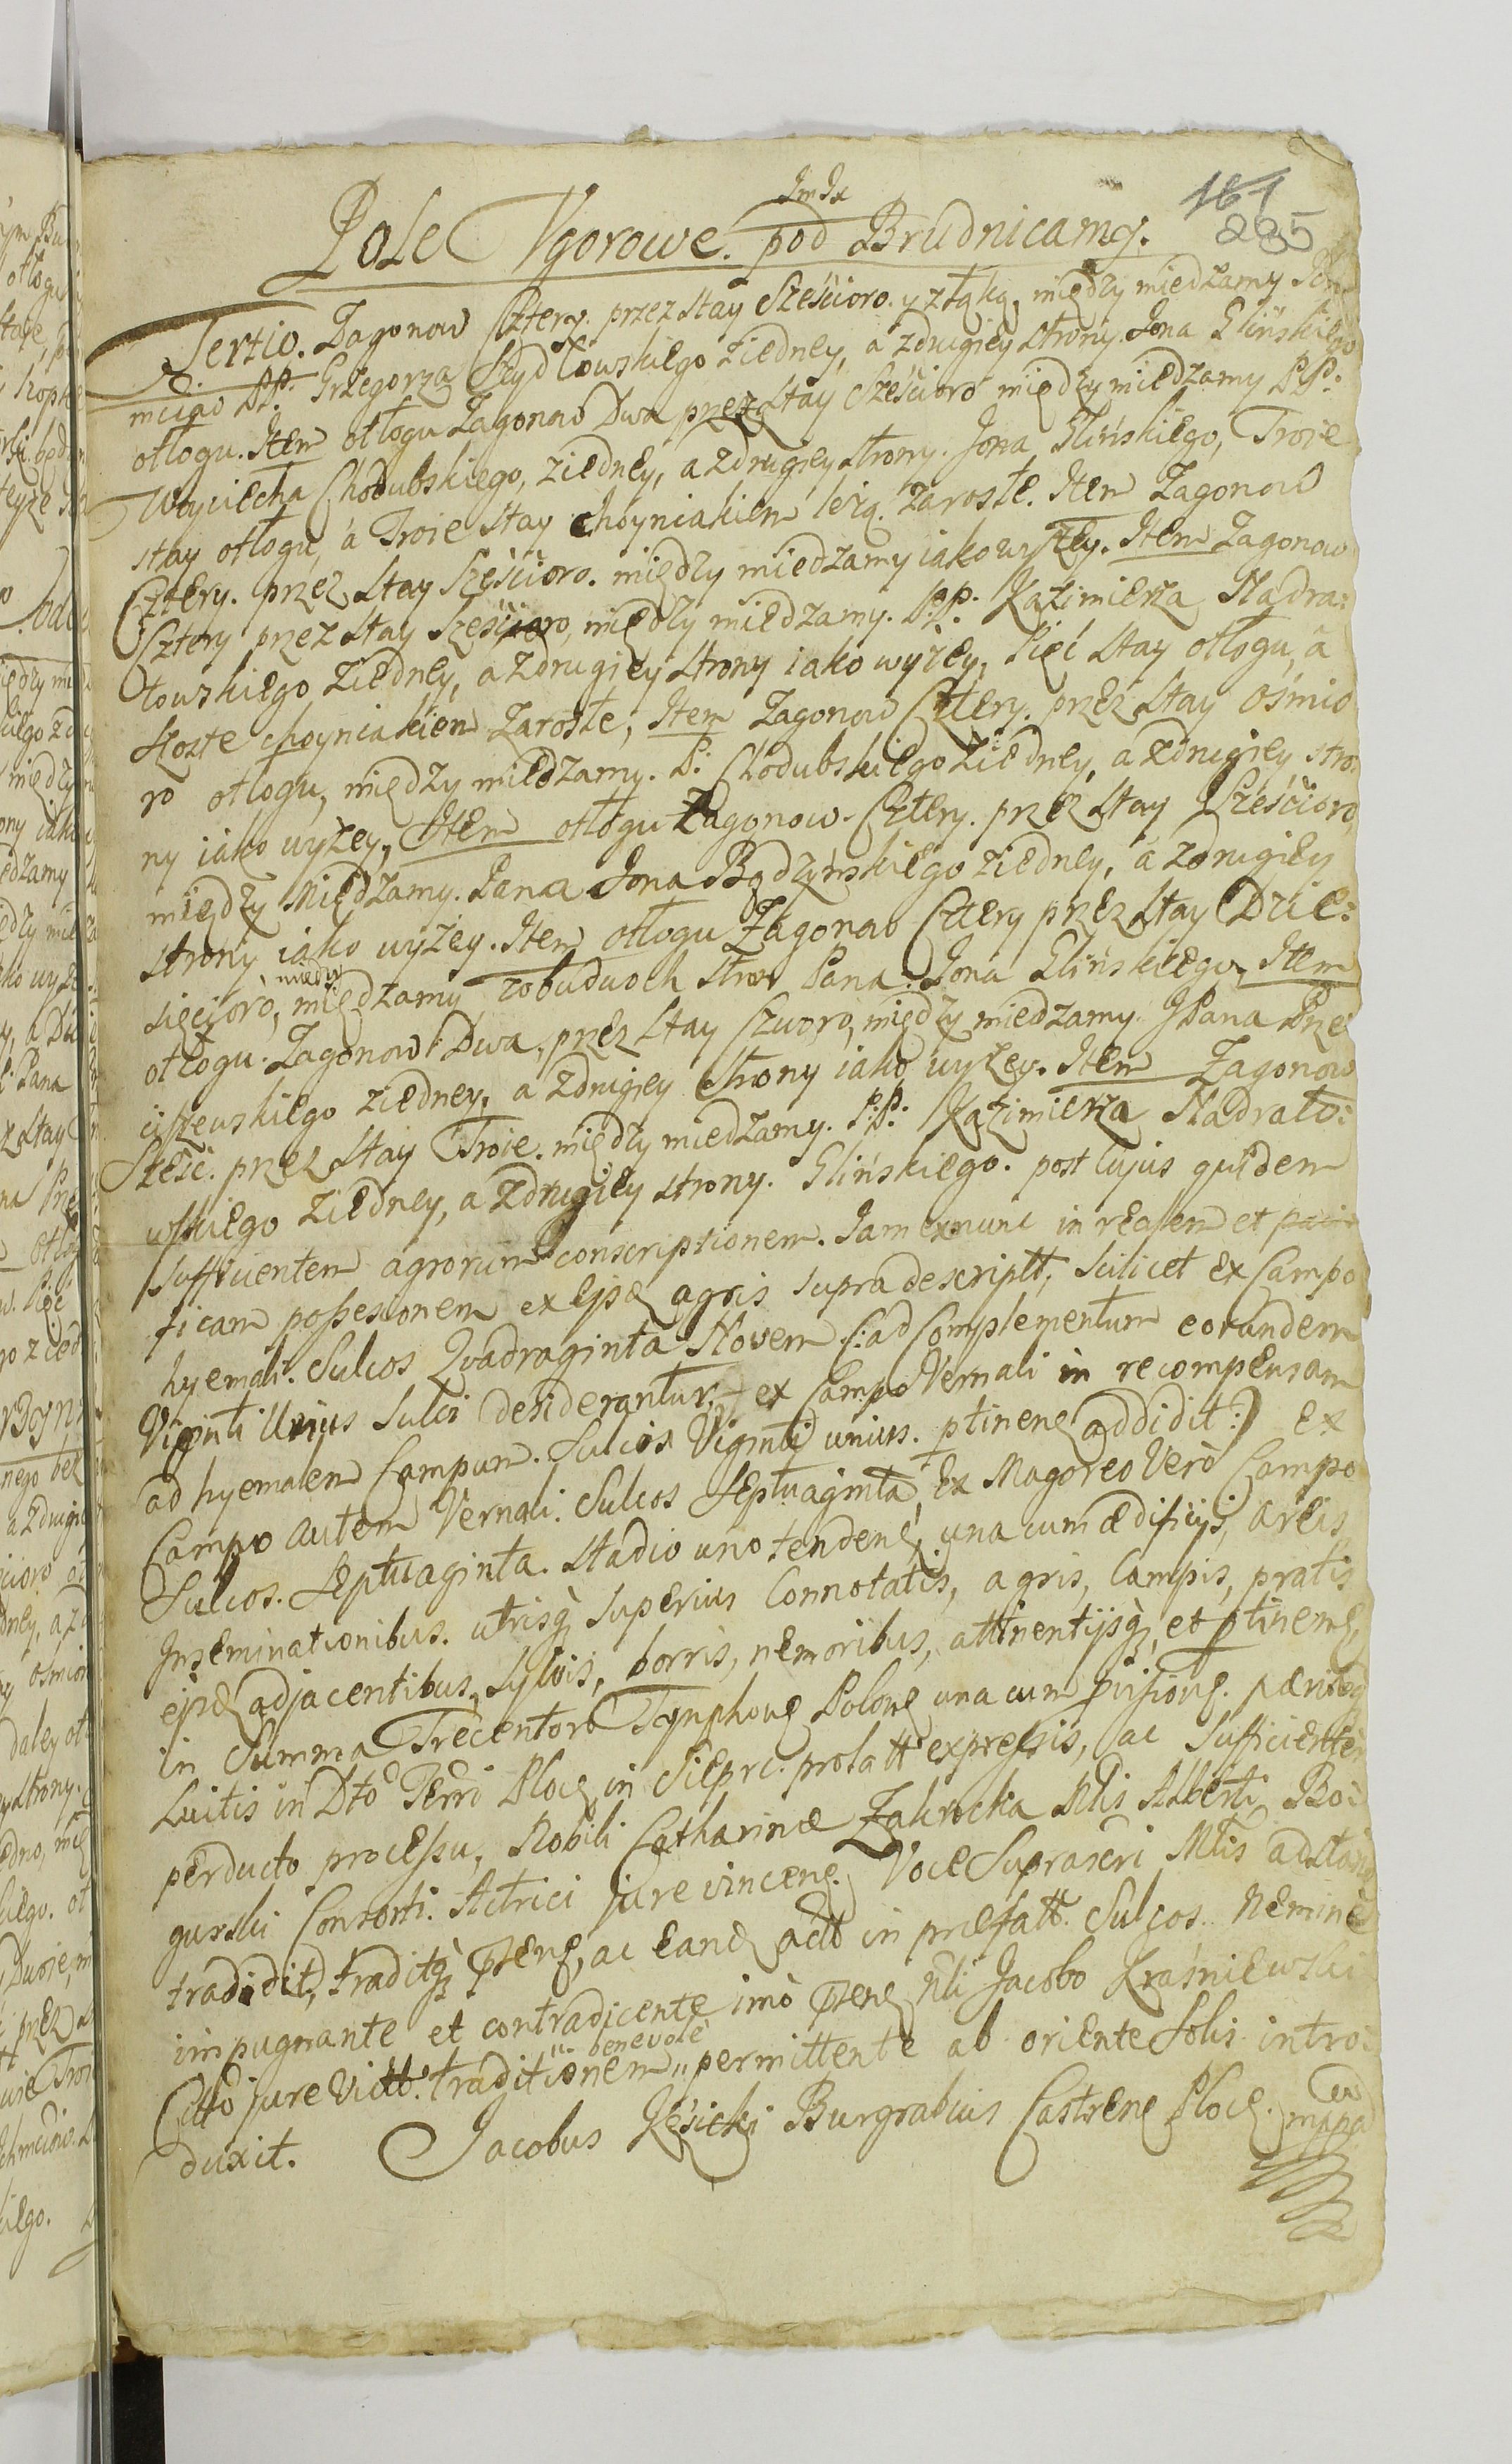 161
235
Pole Vgorowe. pod Brudnicamy.
Tertio. Zagonow Cztery. przez stay Sześcioro. y złąką, między miedzamy
PP. Grzegorza Szydłowskiego ziedney, a zdrugiey strony Jona Glińskiego
otłogu. Item otłogu Zagonow Dwa przez stay Sześcioro między miedzamy PP:
Woyciecha Chodubskiego, ziedney, a zdrugiey strony. Jona Glińskiego, Troie
stay otłogu, a Troie stay choyniakiem leżą. zarosłe. Item Zagonow
Cztery. przez stay Sześcioro. między miedzamy iako wyżey. Item Zagonow
Cztery przez stay Sześcioro, między miedzamy. P.P. Kazimierza Nadra:
towskiego ziedney, a zdrugiey strony iako wyżey, Pięć stay otłogu, a
szoste choyniakiem zarosłe; Item Zagonow Cztery. przez stay ośmio
ro otłogu, między miedzamy. P: Chodubskiego ziedney, a zdrugiey stro:
ny iako wyżey, Item otłogu Zagonow. Cztery. przez stay Sześcioro,
między Miedzamy. Pana Jona Bądzyńskiego ziedney, a zdrugiey
strony iako wyżey. Item otłogu Zagonow Cztery przez stay Dzie:
sięcioro, między miedzamy zobudwoch stron Pana Jona Glińskiego, Item
otłogu. Zagonow Dwa, przez stay Czworo, między miedzamy JPana Prze
ciszewskiego ziedney, a zdrugiey strony iako wyżey. Item Zagonow
Sześć. przez stay Troie. między miedzamy. P.P. Kazimierza Nadrato:
wskiego ziedney, a zdrugiey strony. Glińskiego. post cujus quidem
sufficientem agrorum conscriptionem. Jam exnunc in realem et paci
ficam possesionem ex ejsd agris supra descriptt, scilicet ex Campo
hyemali. Sulcos Quadraginta Novem (: ad Complementum eorundem
Viginti Unius Sulci desiderantur, ex Campo Vernali in recompensam
ad hyemalem Campum. Sulcos Viginti unius. ptinen addidit:) ex
Campo autem Vernali. Sulcos Septuaginta, Ex Magoreo Verò Campo
Sulcos. Septuaginta. stadio uno tenden, una cum ædificijs, areis,
Inseminationibus. utrisq superius Connotatis, agris, Campis, pratis
ejsd adjacentibus, sylvis, borris, nemoribus, attinentijsq, et ptinen,
in Summa Trecentor Tynphon Polon una cum
Luitis in Dto Terri Ploc in Sieprc. prolatt expressis, ac sufficienter
perducto processu, Nobili Catharinæ Zakrocka Nlis Alberti Bo:
gurski Consorti. Actrici jure vincen. Voce Suprascri Mlis adstan
tradidit, traditq psen, ac eand actt in præfatt. Sulcos. Nemine
impugnante et contradicente imò psen Nli Jacobo Kraśniewski
Citto jure Victto. traditionem benevolè permittente ab oriente Solis intro:
duxit. Jacobus Kęsicki Burgrabius Castren Ploc. mppa